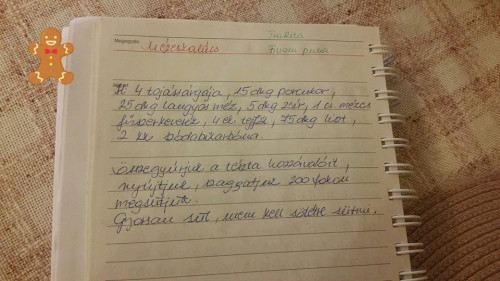 Megjegyzés
Mézeskalács
Finom puha
4 tojássárgája, 15 dkg porcukor,
25 dkg langyos méz, 5 dkg zsír, 1 cs mézes
fűszerkeverék, 4 ek tejföl, 75 dkg liszt,
2 kk szódabikarbóna
Összegyúrjuk a tészta hozzávalóit,
nyújtjuk, szaggatjuk 200 fokon
megsütjük.
Gyorsan sül, nem kell sötétre sütni.